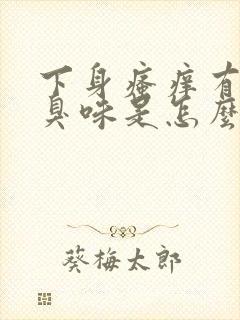 下身瘙痒有
臭味是怎麼
葵梅太郎